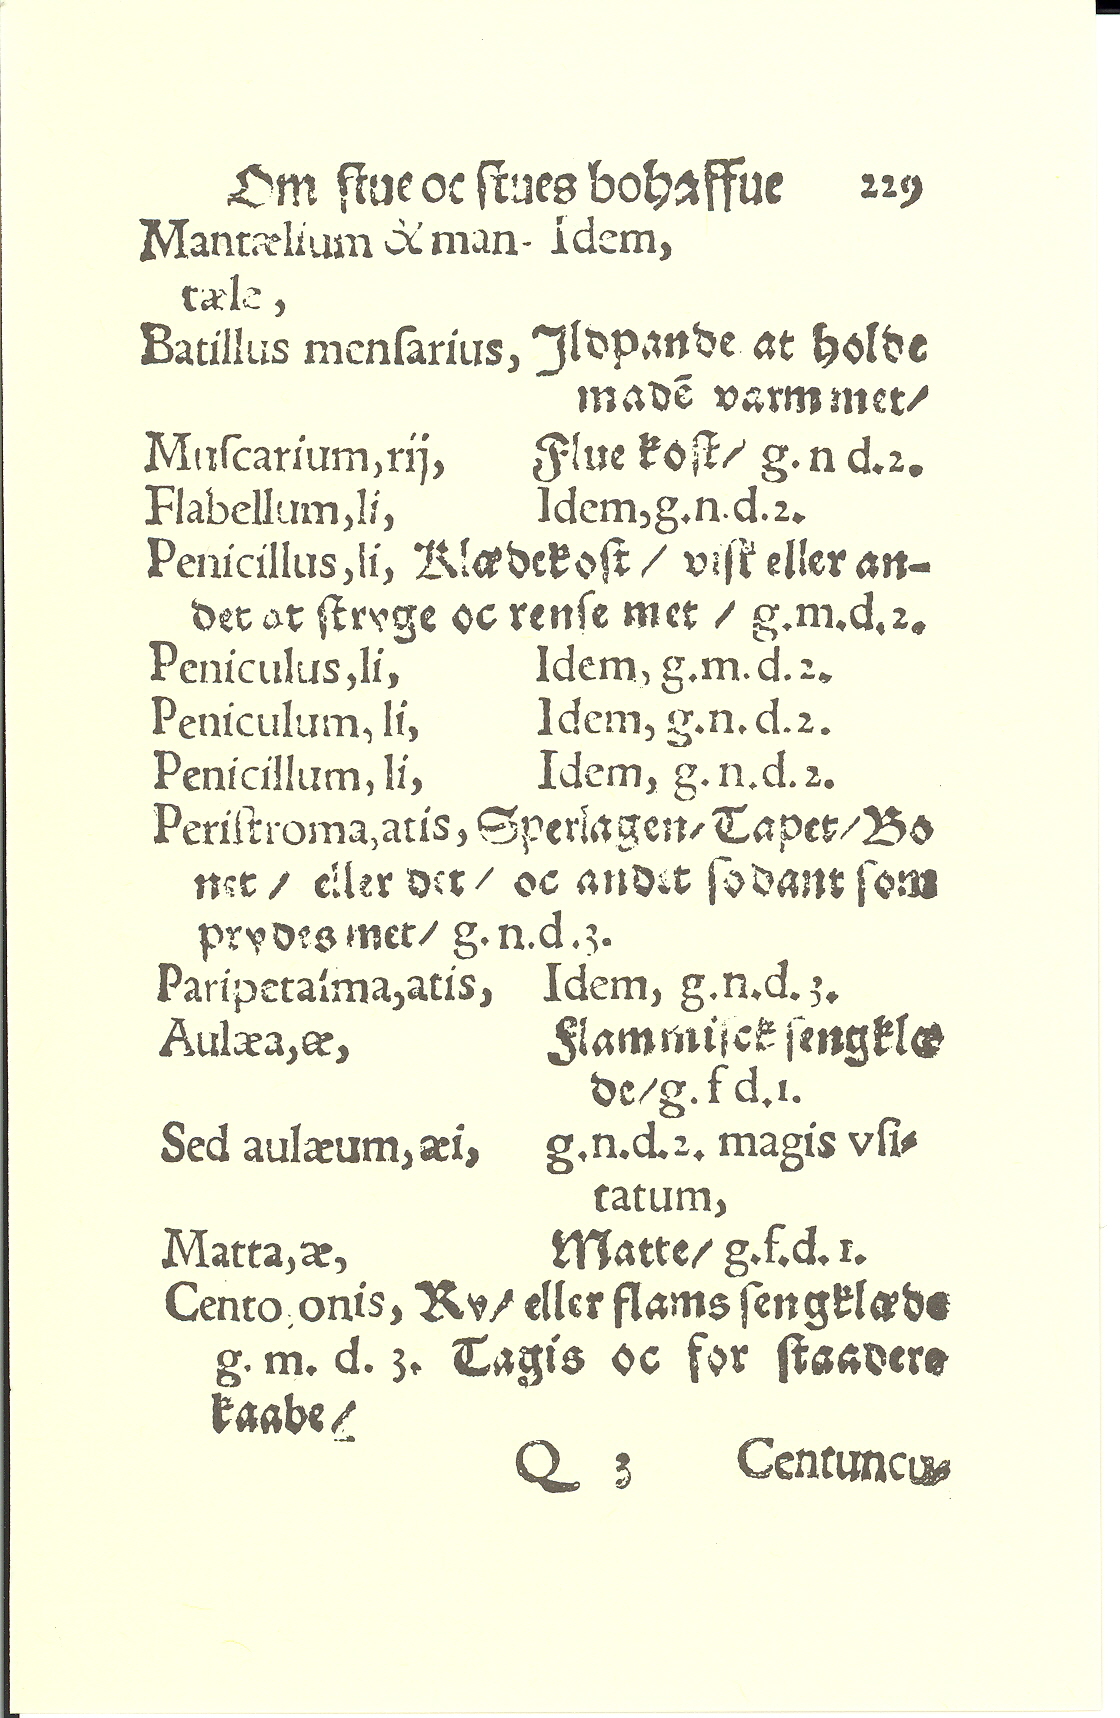 Om ſtue oc ſtues bohaffue 229
Mantælium & man- Idem,
tæle,
Batillus menſarius, Jldpande at holde
madē varm met/
Muſcarium, rij, Flue koſt/ g. n d. 2.
Flabellum, li, Idem, g. n. d. 2.
Penicillus, li, Klædekoſt / viſk eller an-
det at ſtryge oc renſe met / g. m. d. 2.
Peniculus, li, Idem, g. m. d. 2.
Peniculum, li, Idem, g. n. d. 2.
Penicillum, li, Idem, g. n. d. 2.
Periſtroma, atis, Sperlagen/ Tapet/ Bo
net / eller det / oc andet ſodant ſom
prydes met/ g. n. d. 3.
Paripetaſma, atis, Idem, g. n. d. 3.
Aulæa, æ, Flammiſck ſengklæ
de/ g. f d. 1.
Sed aulæum, æi, g. n. d. 2. magis vſi-
tatum,
Matta, æ, Matte/ g. f. d. 1.
Cento, onis, Ry/ eller flams ſengklæde
g. m. d. 3. Tagis oc for ſtaadere
kaabe/
Q 3 Centuncu-